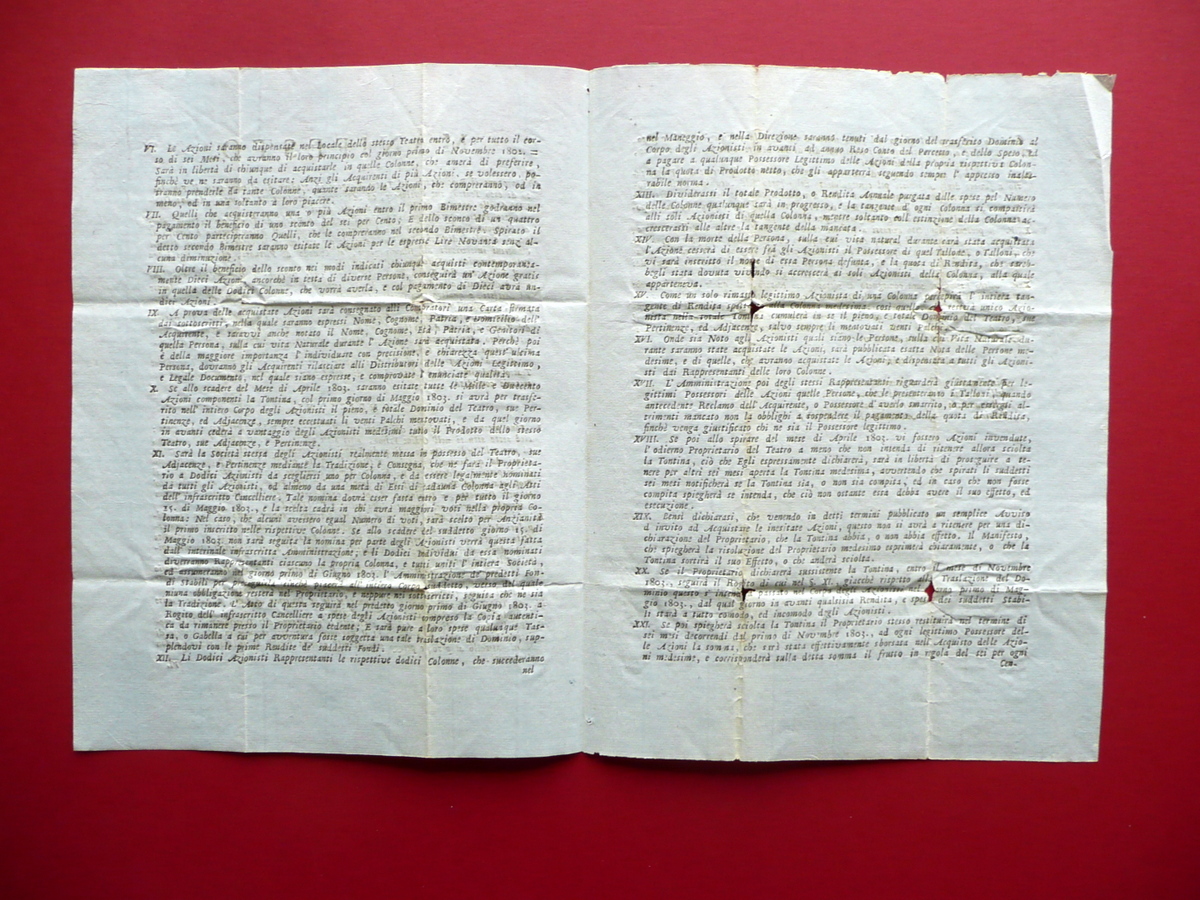 VI. Le Azioni saranno dispensate nel Locale dello stesso Teatro entro, e per tutto il cor-
so di sei Mesi, che avranno il loro principio col giorno primo di Novembre 1802. =
Sarà in libertà di chiunque di acquistarle in quelle Colonne, che amerà di preferire,
finchè ve ne saranno da esitare: Anzi gli Acquirenti di più Azioni, se volessero, po-
tranno prenderle da tante Colonne, quante saranno le Azioni, che compreranno, od in
meno, od in una soltanto a loro piacere.
VII. Quelli che acquisteranno una o più Azioni entro il primo Bimestre godranno nel
pagamento il beneficio di uno sconto del sei per Cento; E dello sconto di un quattro
per Cento parteciperanno Quelli, che le compreranno nel secondo Bimestre. Spirato il
detto secondo Bimestre saranno esitate le Azioni per le espresse Lire Novanta senz' al-
cuna diminuzione.
VIII. Oltre il beneficio dello sconto nei modi indicati chiunque acquisti contemporanea-
mente Dieci Azioni, ancorchè in testa di diverse Persone, conseguirà un' Azione gratis
in quella delle Dodici Colonne, che vorrà averla, e col pagamento di Dieci avrà un-
dici Azioni.
IX. A prova delle acquistate Azioni sarà consegnato alli Compratori una Carta firmata
dai sottoscritti, nella quale saranno espressi Nome, Cognome, Patria, e domicilio dell'
Acquirente, e saravvi anche notato il Nome, Cognome, Età, Patria, e Genitori di
quella Persona, sulla cui vita Naturale durante l' Azione sarà acquistato. Perchè poi
è della maggiore importanza l' individuare con precisione, e chiarezza quest' ultima
Persona, dovranno gli Acquirenti rilasciare alli Distributori delle Azioni Legittimo,
e Legale Documento, nel quale siano espresse, e comprovate l' enunciate qualità.
X. Se allo scadere del Mese di Aprile 1803. saranno esitate tutte le Mille e Duecento
Azioni componenti la Tontina, col primo giorno di Maggio 1803. si avrà per trasfe-
rito nell' intiero Corpo degli Azionisti il pieno, e totale Dominio del Teatro, sue Per-
tinenze, ed Adjacenze, sempre eccettuati li venti Palchi mentovati, e da quel giorno
in avanti cederà a vantaggio degli Azionisti medesimi tutto il Prodotto dello stesso
Teatro, sue Adjacenze, e Pertinenze.
XI. Sarà la Società stessa degli Azionisti realmente messa in possesso del Teatro, sue
Adjacenze, e Pertinenze mediante la Tradizione, e Consegna, che ne farà il Proprieta-
rio a Dodici Azionisti da scegliersi uno per Colonna, e da essere legalmente nominati
da tutti gli Azionisti, od almeno da una metà di Essi di cadauna Colonna agli Atti
dell' infrascritto Cancelliere. Tale nomina dovrà esser fatta entro e per tutto il giorno
15. di Maggio 1803., e la scelta cadrà in chi avrà maggiori voti nella propria Co-
lonna: Nel caso, che alcuni avessero egual Numero di voti, sarà scelto per Anzianità
il primo inscritto nelle rispettive Colonne. Se allo scadere del suddetto giorno 15. di
Maggio 1803. non sarà seguita la nomina per parte degli Azionisti verrà questa fatta
dall' interinale infrascritta Amministrazione; e li Dodici Individui da essa nominati
diverranno Rappresentanti ciascuno la propria Colonna, e tutti uniti l' intiera Società,
ed assumeranno nel giorno primo di Giugno 1803. l' Amministrazione de' predetti Fon-
di stabili per
niuna obbligazione resterà nel Proprietario, e neppure nei sottoscritti, seguita che ne sia
la Tradizione. L' Atto di questa seguirà nel predetto giorno primo di Giugno 1803. a
Rogito dell' infrascritto Cancelliere a spese degli Azionisti compreso la Copia autenti-
ca da rimanere presso il Proprietario cedente; E sarà pure a loro spese qualunque Tas-
sa, o Gabella a cui per avventura fosse soggetta una tale traslazione di Dominio, sup-
plendovi con le prime Rendite de' suddetti Fondi.
XII. Li Dodici Azionisti Rappresentanti le rispettive dodici Colonne, che succederanno
nel
nel Maneggio, e nella Direzione saranno tenuti dal giorno del trasferito Dominio al
Corpo degli Azionisti in avanti ad annuo Reso Conto del Percetto, e dello Speso, ed
a pagare a qualunque Possessore Legittimo delle Azioni della propria rispettiva Colon-
na la quota di Prodotto netto, che gli apparterrà, seguendo sempre l' appresso inalte-
rabile norma.
XIII. Dividerassi il totale Prodotto, o Rendita Annuale purgata dalle spese pel Numero
delle Colonne qualunque sarà in progresso, e la tangente d' ogni Colonna si compartirà
alli soli Azionisti di quella Colonna, mentre soltanto coll' estinzione della Colonna ac-
cresceransi alle altre la tangente della mancata.
XIV. Con la morte della Persona, sulla cui vita natural durante sarà stata acquistata
l' Azione cesserà di essere fra gli Azionisti il Possessore di quel Tallone, o Talloni, che
vi sarà inscritto il nome di essa Persona defunta, e la quota di Rendita, che sareb-
begli stata dovuta vivendo si accrescerà ai soli Azionisti della Colonna, alla quale
apparteneva.
XV. Come un solo rimasto legittimo Azionista di una Colonna percepirà l' intiera tan-
gente di Rendita alla Colonna medesima, così quello, che resterà unico Azio-
nista nella totale Tontina cumulerà in se il pieno, e totale Dominio del Teatro, sue
Pertinenze, ed Adjacenze, salvo sempre li mentovati venti Palchi.
XVI. Onde sia Noto agli Azionisti quali siano le Persone, sulla cui Vita Naturale du-
rante saranno state acquistate le Azioni, sarà pubblicata esatta Nota delle Persone me-
desime, e di quelle, che avranno acquistate le Azioni; e dispensata a tutti gli Azioni-
sti dai Rappresentanti delle loro Colonne.
XVII. L' Amministrazione poi degli stessi Rappresentanti riguarderà giustamente per le-
gittimi Possessori delle Azioni quelle Persone, che le presenteranno i Talloni, quando
antecedente Reclamo dell' Acquirente, o Possessore d' averlo smarrito, o per essergli al-
trimenti mancato non la obblighi a sospendere il pagamento della quota di Rendita,
finchè venga giustificato chi ne sia il Possessore legittimo.
XVIII. Se poi allo spirare del mese di Aprile 1803. vi fossero Azioni invendute,
l' odierno Proprietario del Teatro a meno che non intenda di ritenere allora sciolta
la Tontina, ciò che Egli espressamente dichiarerà, sarà in libertà di proseguire a te-
nere per altri sei mesi aperta la Tontina medesima, avvertendo che spirati li suddetti
sei mesi notificherà se la Tontina sia, o non sia compita, ed in caso che non fosse
compita spiegherà se intenda, che ciò non ostante essa debba avere il suo effetto, ed
esecuzione.
XIX. Bensì dichiarasi, che venendo in detti termini pubblicato un semplice Avviso
d' invito ad Acquistare le inesitate Azioni, questo non si avrà a ritenere per una di-
chiarazione del Proprietario, che la Tontina abbia, o non abbia effetto. Il Manifesto,
che spiegherà la risoluzione del Proprietario medesimo esprimerà chiaramente, o che la
Tontina sortirà il suo Effetto, o che andrà sciolta.
XX. Se il Proprietario dichiarerà sussistente la Tontina, entro il mese di Novembre
1803. seguirà il Rogito di cui nel §. XI., giacchè rispetto Traslazione del Do-
minio questo s' intenderà passato nel Corpo degli Azionisti primo di Mag-
gio 1803., dal qual giorno in avanti qualsisia Rendita, e spesa dei suddetti Stabi-
li starà a tutto comodo, ed incomodo degli Azionisti.
XXI. Se poi spiegherà sciolta la Tontina il Proprietario stesso restituirà nel termine di
sei mesi decorrendi dal primo di Novembre 1803., ad ogni legittimo Possessore del-
le Azioni la somma, che sarà stata effettivamente sborsata nell' Acquisto delle Azio-
ni medesime, e corrisponderà sulla detta somma il frutto in regola del sei per ogni
Cen-